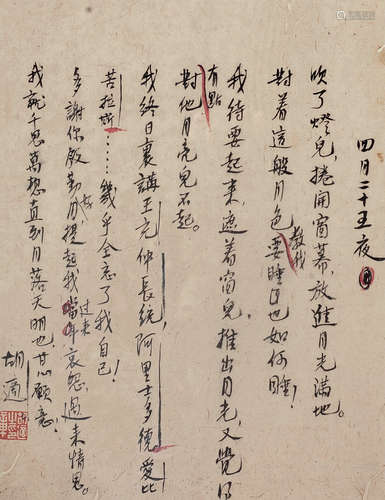 四月二十五夜
吹了燈兒，捲開窗幕，放進月光滿地。
對着這般月色，教我要睡也如何睡！
我待要起來，遮着窗兒，推出月光，又覺得
有點
對他月亮兒不起。
我終日裏講王充，仲長統，阿里士多德，愛比
苦拉斯……幾乎全忘了我自己！
多謝你殷勤好月提起我過來哀怨，過來情思。
我就千思萬想直到月落天明也甘心願意！
胡適